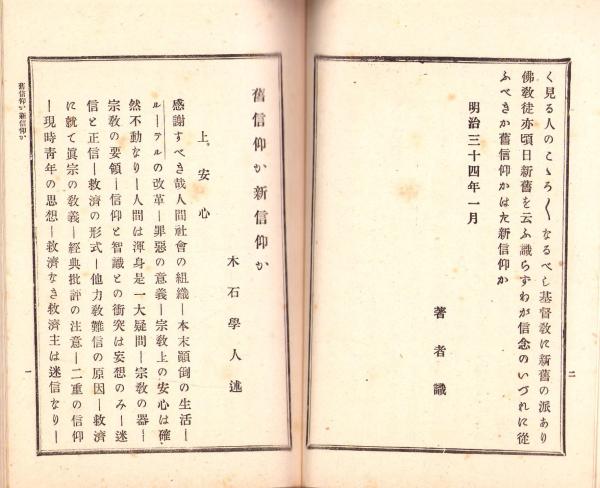 く見る人のこゝろ〳〵なるべし基督敎に新舊の派あり
佛敎徒亦頃日新舊を云ふ識らずわが信念のいづれに從
ふべきか舊信仰かはた新信仰か
明治三十四年一月
著者識
二
舊信仰か新信仰か
木石學人述
上、安心
感謝すべき哉人間社會の組織―本末顚倒の生活―
ルーテルの改革―罪惡の意義―宗敎上の安心は確
然不動なり―人間は渾身是一大疑問―宗敎の器―
宗敎の要領―信仰と智識との衝突は妄想のみ―迷
信と正信―救濟の形式―他力敎難信の原因―救濟
に就て眞宗の敎義―經典批評の注意―二重の信仰
―現時靑年の思想―救濟なき救濟主は迷信なり―
舊信仰か新信仰か
一